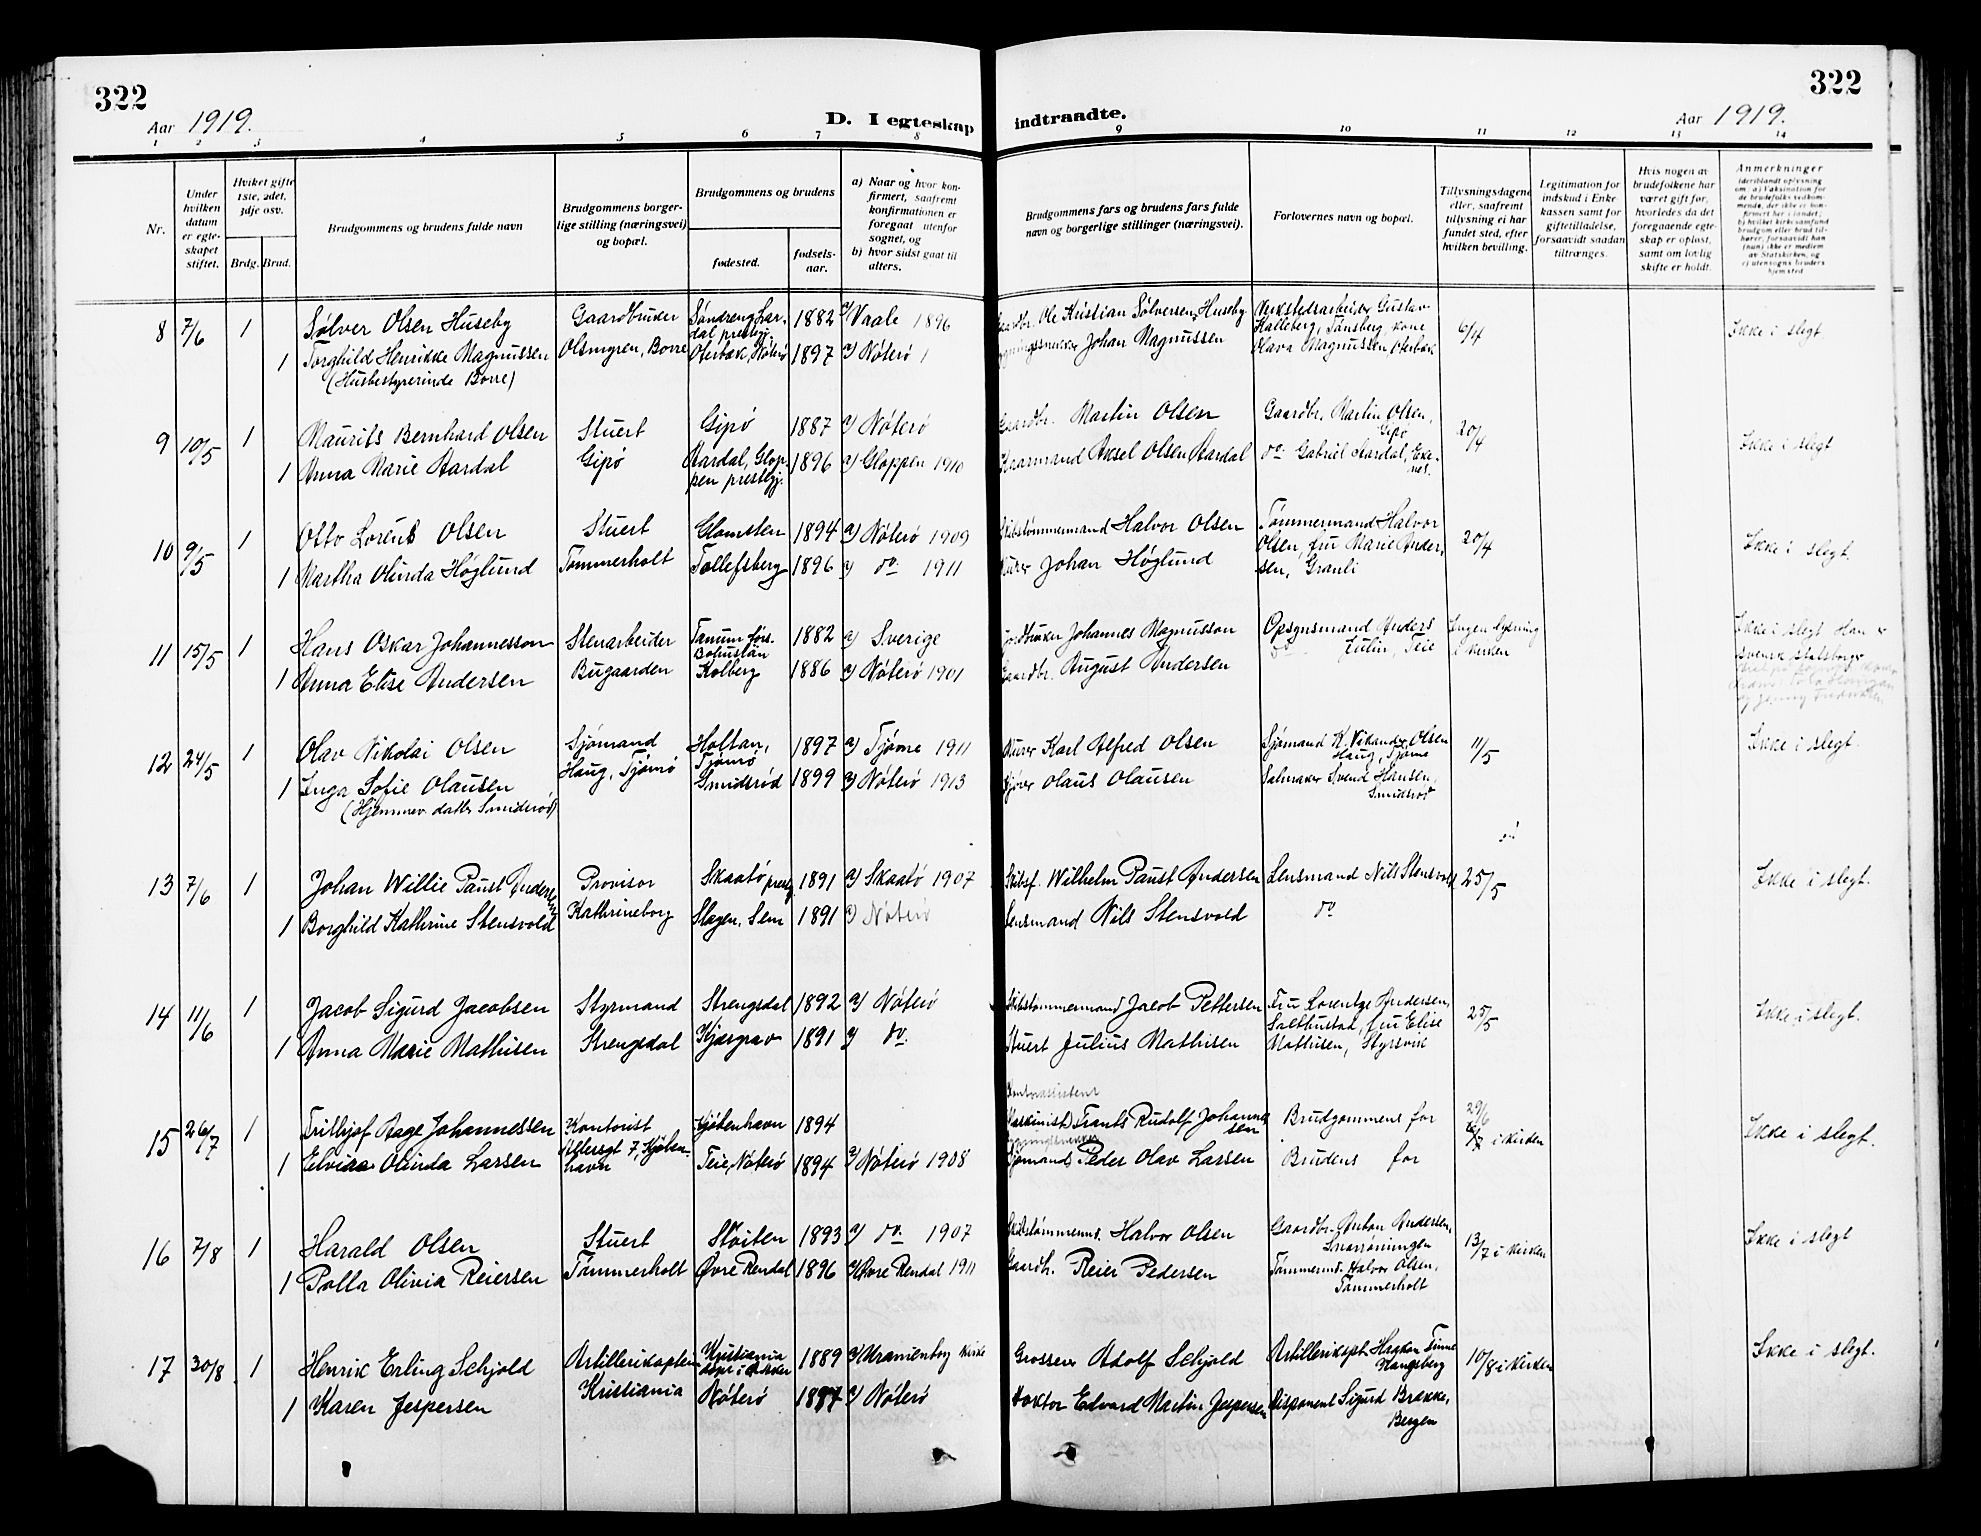 322
322
Aar 1919.
D. I egteskap indtraadte.
Aar 1919.
1 2 3 4 5 6 7 8 9 10 11 12 13 14
Nr.
Under hvilken datum er egteskapet stiftet.
Hviket gifte 1ste, 2det, 3dje osv.
Brdg. Brud.
Brudgommens og brudens fulde navn
Brudgommens borgerlige stilling (næringsvei) og bopæl.
Brudgommens og brudens
fødested.
fødselsaar.
a) Naar og hvor konfirmert, saafremt konfirmationen er foregaat utenfor sognet, og
b) hvor sidst gaat til alters.
Brudgommens fars og brudens fars fulde navn og borgerlige stillinger (næringsvei).
Forlovernes navn og bopæl.
Tillysningsdagene eller, saafremt tillysning ei har fundet sted, efter hvilken bevilling.
Legitimation for indskud i Enkekassen samt for giftetilladelse, forsaavidt saadan tiltrænges.
Hvis nogen av brudefolkene har været gift før, hvorledes da det foregaaende egteskap er opløst, samt om lovlig skifte er holdt.
Anmerkninger (deriblandt oplysning om: a) Vaksination for de brudefolks vedkommende, der ikke er konfirmert her i landet; b) hvilket kirkesamfund brudgom eller brud tilhører, forsaavidt han (hun) ikke er medlem av Statskirken, og c) utensogns bruders hjemsted
8 7/6 1 Sølver Olsen Huseby Gaardbruker Søndreng Lardal prestegj. 1882 a) Vaale 1896 Gaardbr. Ole Kristian Sølversen Huseby Verkstedarbeider Gustav Kalleberg, Tønsberg, kone 6/4 Ikke i slegt.
1 Torghild Henrikke Magnussen Olsmgren, Borre Oterbæk, Nøterø 1897 a) Nøterø Johan Magnussen Olava Magnussen, Oterbæk
(Husbestyrerinde Borre)
9 10/5 1 Maurits Bernhard Olsen Stuert Gipø 1887 a) Nøterø Gaardbr. Martin Olsen Gaardbr. Martin Olsen, Gipø 20/4 Ikke i slegt
1 Anna Marie Aardal Gipø Aardal, Gloppen prestegj. 1896 a) Gloppen 1910 Kaarmand Aksel Olsen Aardal do Gabriel Aardal, Ekenes.
10 9/5 1 Otto Lorents Olsen Stuert Glomsten 1894 a) Nøterø 1909 Skibstømmermand Halvor Olsen Tømmermand Halvor Olsen, fru Marie Andersen, Granli 20/4 Ikke i slegt.
1 Martha Olinda Høglund Tømmerholt Tollefsberg 1896 a) do 1911 Murer Johan Høglund
11 15/5 1 Hans Oskar Johannesson Stenarbeider Tanum förs. Bohuslän 1882 a) Sverige Jordbruker Johannes Magnusson Opsynsmand Anders Julin, Teie Ingen lysning i kirken Ikke i slegt Han er svensk statsborger
1 Anna Elise Andersen Bugaarden Kolberg 1886 a) Nøterø 1901 Gaardbr. August Andersen do
12 24/5 1 Olav Nikolai Olsen Sjømand Holtan, Tjømø 1897 a) Tjømø 1911 Murer Karl Alfred Olsen Sjømand K. Vikander Olsen Haug, Tjømø 11/5 Ikke i slegt.
1 Inga Sofie Olausen Haug, Tjømø Smidsrød 1899 a) Nøterø 1913 Kjører Olaus Olausen Salmaker Svend Hansen, Smidsrød
(Hjemmev. datter Smidsrød)
13 7/6 1 Johan Willie Paust Andersen Provisor Skaatø prestg 1891 a) Skaatø 1907 Skibsf. Wilhelm Paust Andersen Lensmand Nils Stensvold 25/5 Ikke i slegt.
1 Borghild Kathrine Stensvold Kathrineborg Slagen, Sem 1891 a) Nøterø Lensmand Nils Stensvold do
14 11/6 1 Jacob Sigurd Jacobsen Styrmand Strengsdal 1892 a) Nøterø Skibstømmermand Jacob Pettersen Fru Lorentze Andersen, Salthustad, fru Elise 25/5 Ikke i slegt.
1 Anna Marie Mathisen Strengsdal Kjøpgrav 1891 a) do. Stuert Julius Mathisen Mathisen, Styrsvik
15 26/7 1 Frithjof Aage Johannessen Kontorist Kjøbenhavn 1894 Maskinist Frants Rudolf Johannessen Brudgommens far 29/6 6/7 i kirken Ikke i slegt.
1 Elvira Olinda Larsen Allersgt 7, Kjøbenhavn Teie, Nøterø 1894 a) Nøterø 1908 Sjømand Peder Olav Larsen Brudens far
16 7/8 1 Harald Olsen Stuert Støiten 1893 a) do. 1907 Skibstømmerm. Halvor Olsen Gaardbr. Anton Andersen, 13/7 i kirken Ikke i slegt
1 Palla Olivia Reiersen Tømmerholt Øvre Rendal 1896 a) Øvre Rendal 1911 Gaardb. Reier Pedersen Tømmerm. Halvor Olsen, Tømmerholt
17 30/8 1 Henrik Erling Schjold Artillerikaptein Kristiania 1889 a) Uranienborg kirke Grosserer Adolf Schjold Artillerikapt. Haakon Finne Kongsberg 10/8 i kirken Ikke i slegt.
1 Karen Jespersen Kristiania Nøterø 1887 a) Nøterø Doktor Edvard Martin Jespersen Disponent Sigurd Brække, Bergen